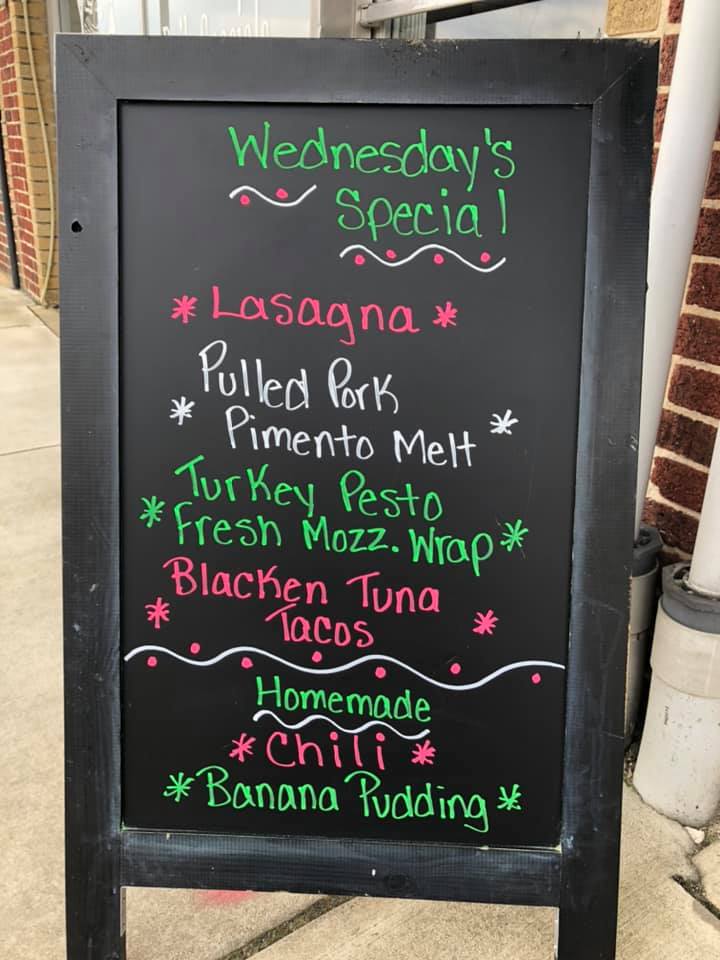 Wednesday's
Special
* Lasagna *
Pulled Pork
* Pimento Melt *
Turkey Pesto
* Fresh Mozz. Wrap *
Blacken Tuna
* Tacos *
Homemade
* Chili *
* Banana Pudding *